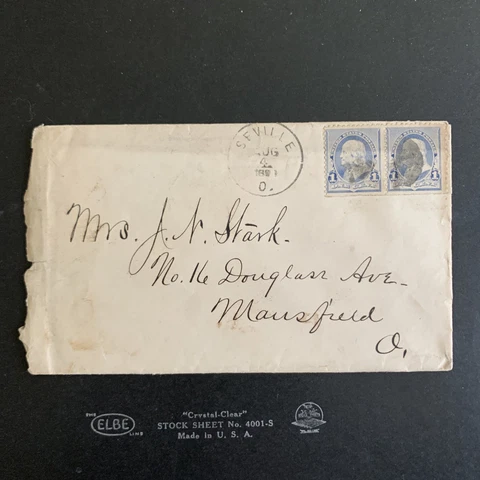 SEVILLE
AUG
4
O.
1 1
1 1
Mrs. J. N. Stark.
No. 16 Douglass Ave.
Mansfield
O.
THE ELBE LINE
"Crystal-Clear"
STOCK SHEET No. 4001-S
Made in U. S. A.